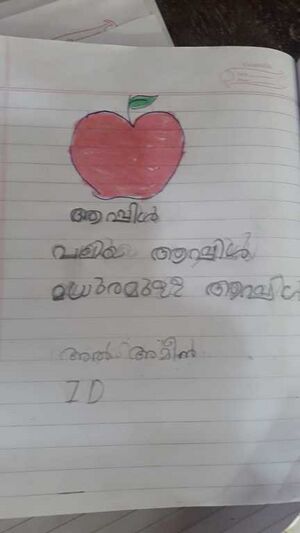 ആപ്പിൾ
വലിയ ആപ്പിൾ
മധുരമുള്ള ആപ്പിൾ
അൽ അമീൻ
I D